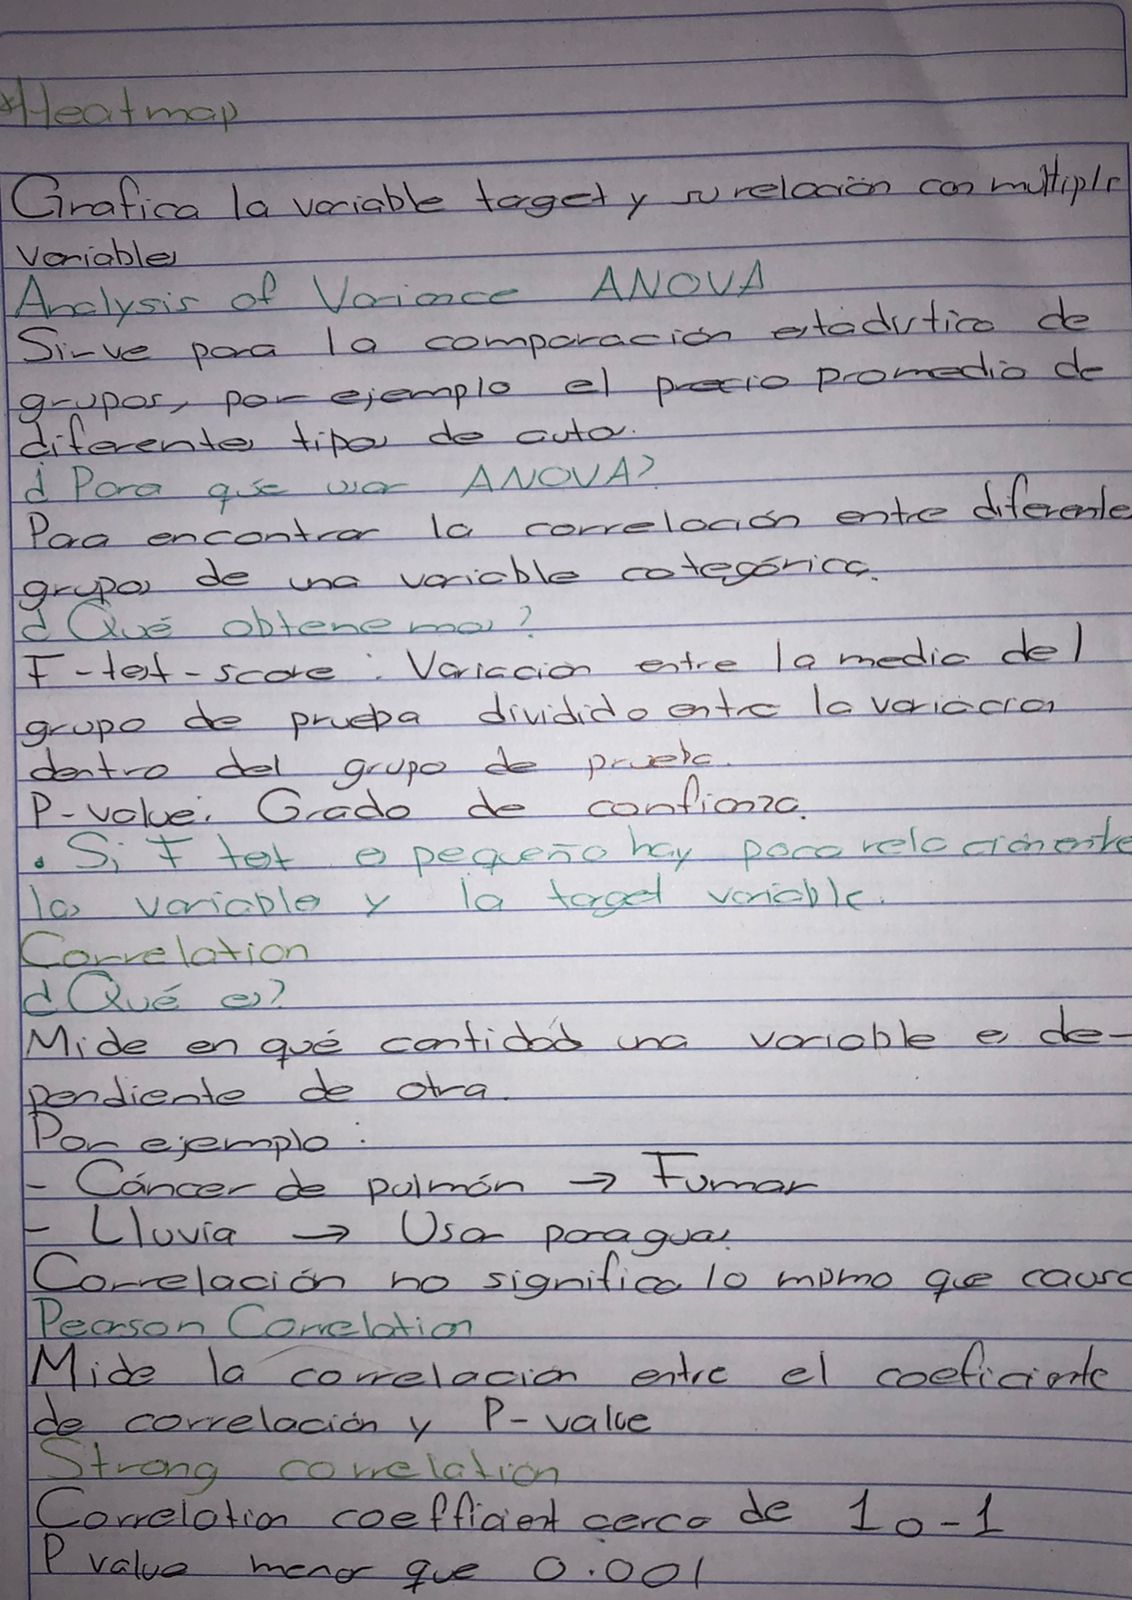 *Heatmap
Grafica la variable target y su relación con multiple
variables
Analysis of Variance ANOVA
Sirve para la comparación estadística de
grupos, por ejemplo el precio promedio de
diferentes tipos de autos.
¿Para qué usar ANOVA?
Para encontrar la correlación entre diferente
grupos de una variable categórica.
¿Qué obtenemos?
F-test-score: Variación entre la media del
grupo de prueba dividido entre la variación
dentro del grupo de prueba.
P-value: Grado de confianza.
• Si F test es pequeño hay poca relación entre
las variables y la target variable.
Correlation
¿Qué es?
Mide en qué cantidad una variable es de-
pendiente de otra.
Por ejemplo:
- Cáncer de pulmón → Fumar
- Lluvia → Usar paraguas.
Correlación no significa lo mismo que causa
Pearson Correlation
Mide la correlación entre el coeficiente
de correlación y P-value
Strong correlation
Correlation coefficient cerca de 1 o -1
P value menor que 0.001